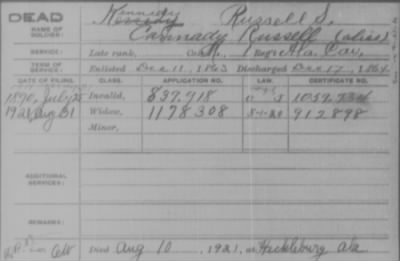 DEAD
Kennedy
NAME OF SOLDIER: Kennedy Russell S.
Cannady Russell (alias)
SERVICE: Late rank, Co. M. 1 Reg't Ala. Cav.
TERM OF SERVICE: Enlisted Dec 11, 1863 Discharged Dec 17, 1864
DATE OF FILING. CLASS. APPLICATION NO. LAW. CERTIFICATE NO.
1890, July 25 Invalid, 837.718
1921, Aug 31 Widow, 1178308 912898
Minor,
ADDITIONAL SERVICES:
REMARKS:
Died Aug 10, 1921, at Hackleburg Ala